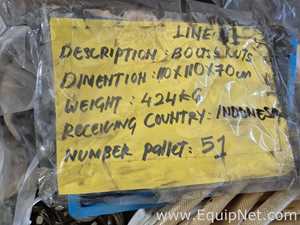 LINE
DESCRIPTION : BOUT & NUTS
DINENTION : 110X110X70cm
WEIGHT : 424KG
RECEIVING COUNTRY: INDONESIA
NUMBER PALLET: 51
www.EquipNet.com